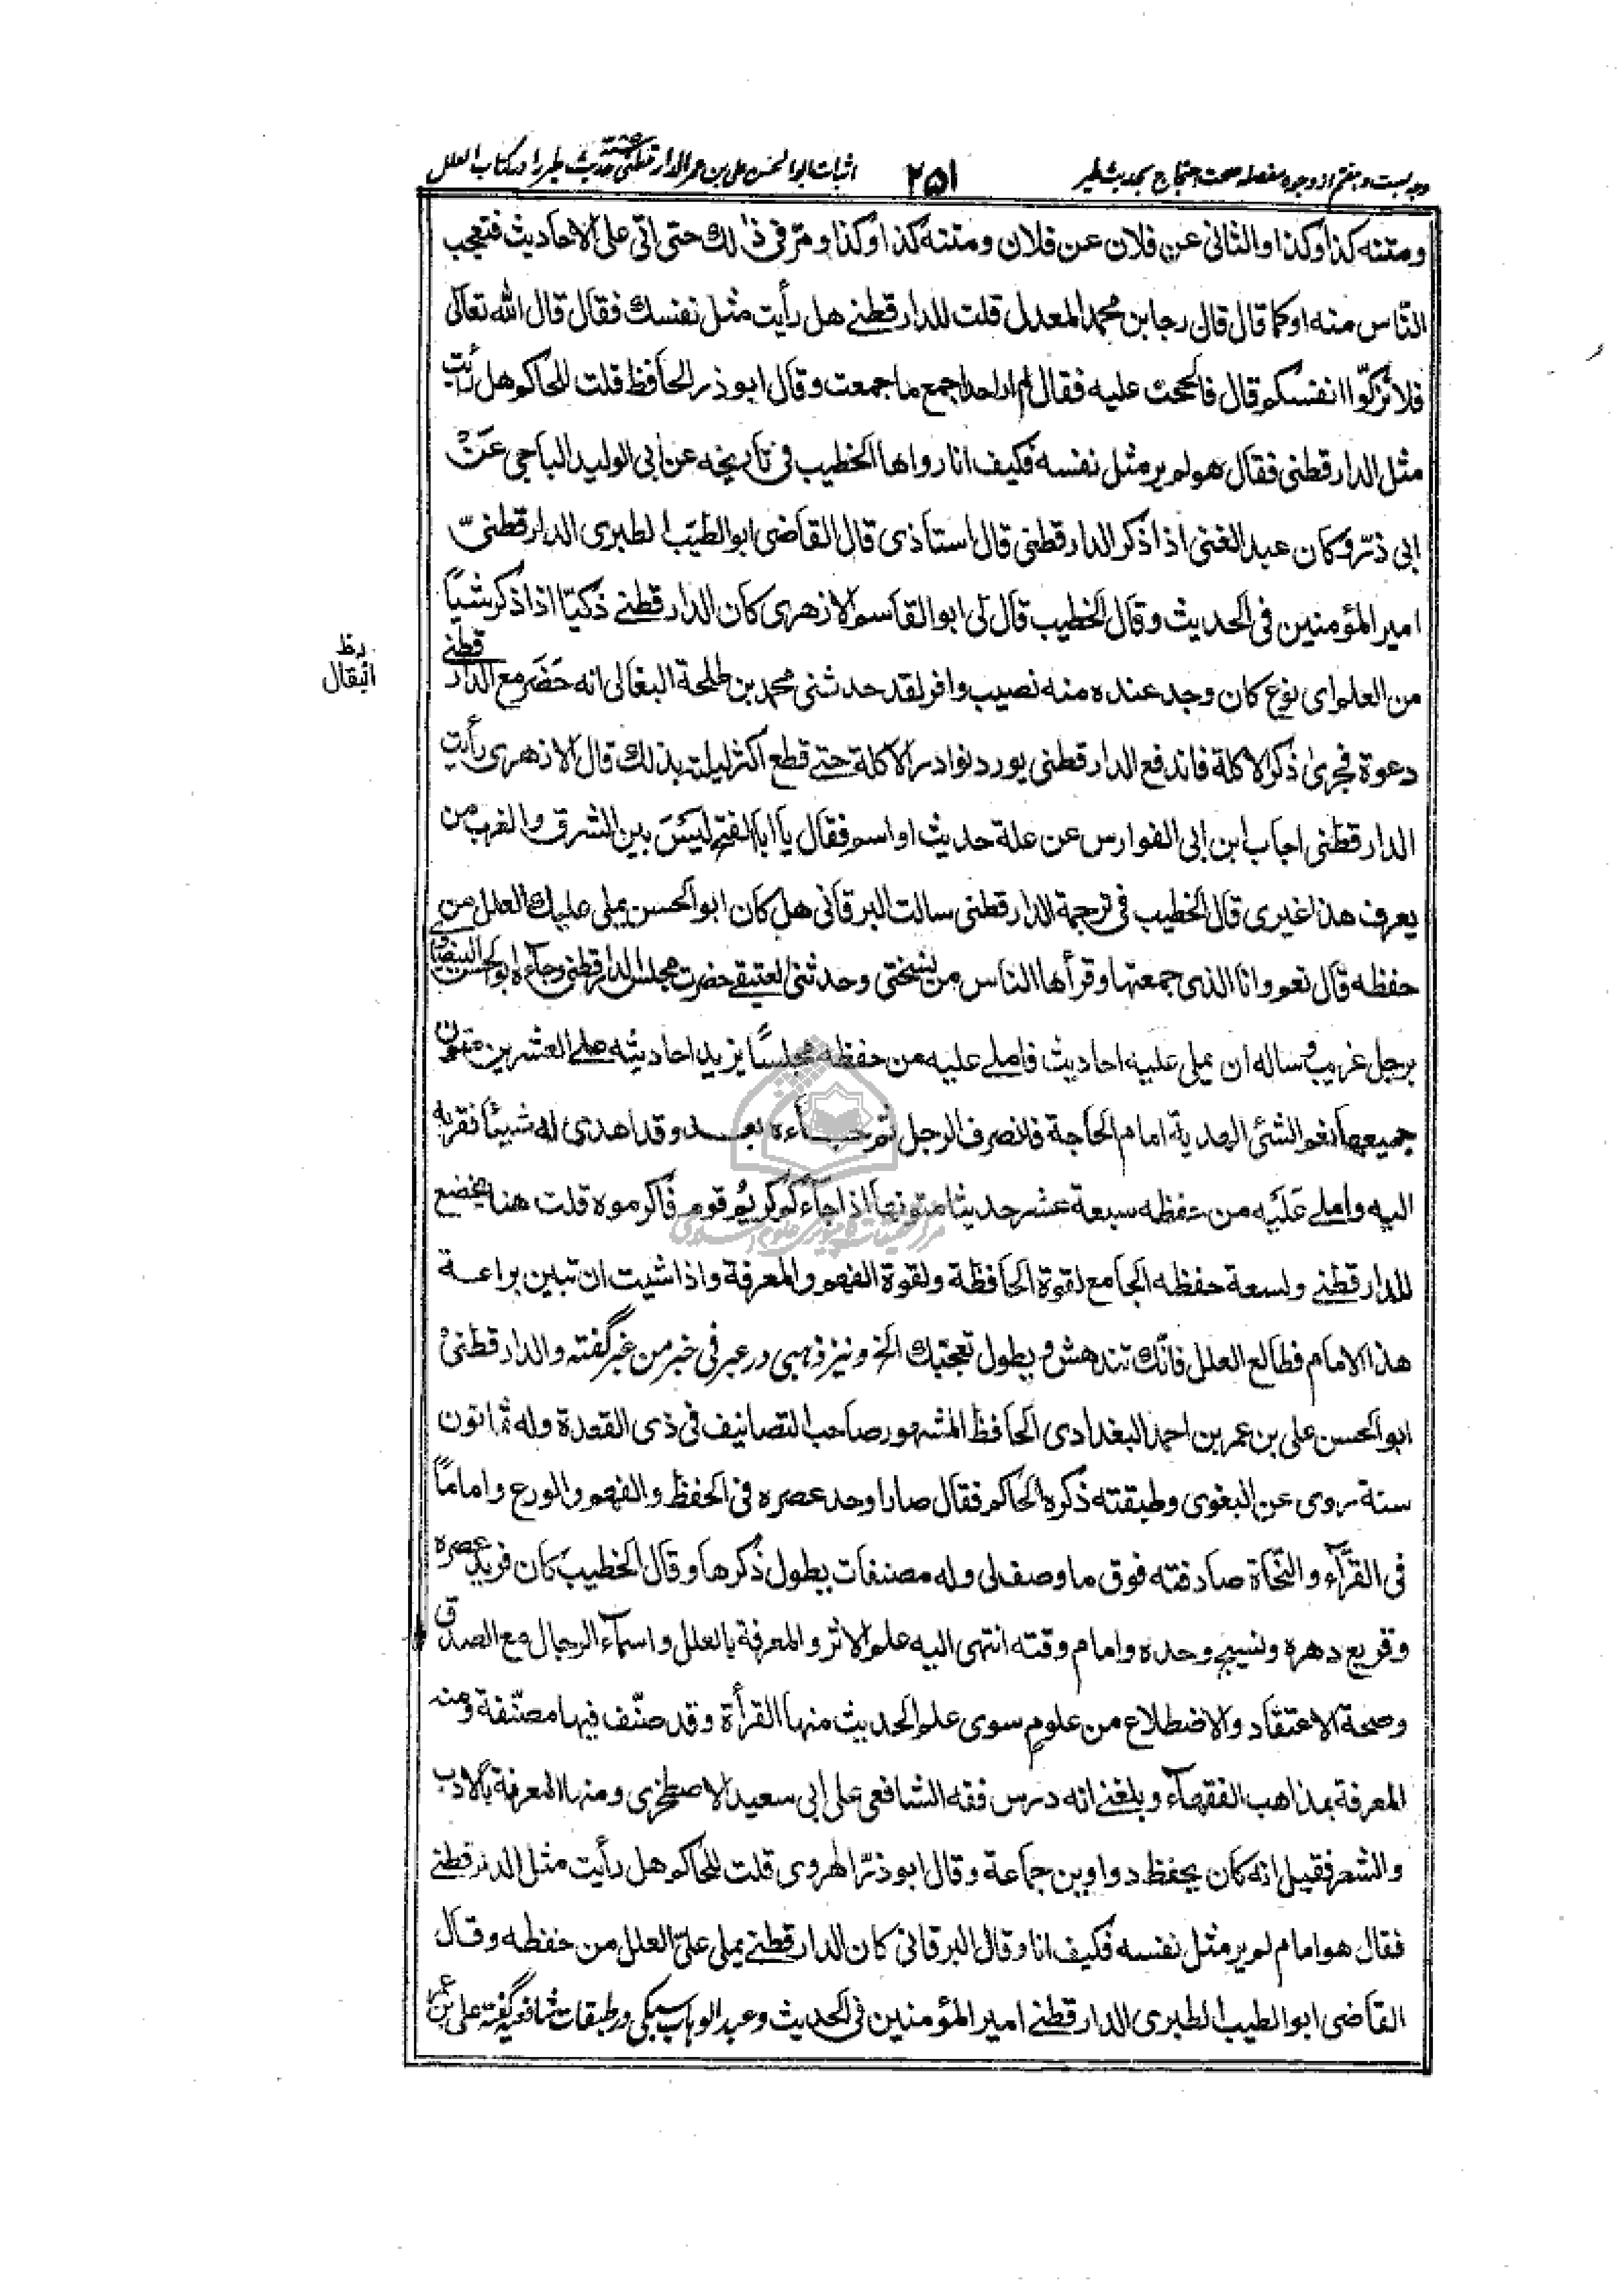 وجه بست و هفتم از وجوه مفصله صحت احتجاج بحديث طير
٢٥١
اثبات ابو الحسن علی بن عمر الدارقطنی حديث طير را در کتاب العلل
ومتنه كذا وكذا والثانی عن فلان عن فلان ومتنه كذا وكذا ومرّ فی ذلك حتی اتی علی الاحاديث فتعجب
النّاس منه او كما قال قال رجا بن محمد المعدل قلت للدارقطنے هل رأيت مثل نفسك فقال قال الله تعالی
فلا تزكّوا انفسكم قال فالححت عليه فقال لم ار احدا جمع ما جمعت وقال ابو ذر الحافظ قلت للحاكم هل رأيت
مثل الدارقطنی فقال هو لم ير مثل نفسه فكيف انا رواها الخطيب فی تاريخه عن ابی الوليد الباجی عن
ابی ذرّ وكان عبد الغنی اذا ذكر الدارقطنی قال استاذی قال القاضی ابو الطيّب الطبری الدارقطنیّ
امير المؤمنين فی الحديث وقال الخطيب قال لی ابو القاسم الازهری كان الدارقطنے ذكيّا اذا ذكر شيئا
من العلم ای نوع كان وجد عنده منه نصيب وافر لقد حدثنی محمد بن طلحة البغالی انه حَضَر مع الدارقطنے
النقال
دعوة فجری ذكر الاكلة فاندفع الدارقطنی يورد نوادر الاكلة حتے قطع اكثر ليلته بذلك قال الازهری رأيت
الدارقطنی اجاب ابن ابی الفوارس عن علة حديث او اسم فقال يا ابا الفتح ليسَ بين الشرق والغرب من
يعرف هذا غيری قال الخطيب فی ترجمة الدارقطنی سالت البرقانی هل كان ابو الحسن يملی عليك العلل من
حفظه قال نعم وانا الذی جمعتها وقرأها الناس من نسختی وحدثنی العتيقے حضرت مجلس الدارقطنی وجاءه ابو الحسن البيضاوے
برجل غريب وساله ان يملی عليه احاديث فاملے عليه من حفظه مجلسًا يزيد احاديثه علے العشرين متون
جميعها نعم الشئی الهدية امام الحاجة فانصرف الرجل ثم جاءه بعد وقد اهدی له شيئًا فقربه
اليه واملے عَلَيه من حفظه سبعة عشر حديثا متونها اذا جاءكم كريم قوم فاكرموه قلت هنا يخضع
للدارقطنے ولسعة حفظه الجامع لقوة الحافظة ولقوة الفهم والمعرفة واذا شيت ان تبين براعة
هذا الامام فطالع العلل فانّك تندهش ويطول تعجّبك الخ ونيز ذهبی در عبر فی خبر من غبر گفته والدارقطنیْ
ابو الحسن علی بن عمر بن احمد البغدادی الحافظ المشهور صاحب التصانيف فی ذی القعدة وله ثمانون
سنة روی عن البغوی وطبقته ذكره الحاكم فقال صار اوحد عصره فی الحفظ والفهم والورع واماماً
فی القرّاء والنّحاة صادفته فوق ما وصف لی وله مصنفات يطول ذكرها وقال الخطيب كان فريد عصره
وقريع دهره ونسيج وحده وامام وقته انتهی اليه علم الاثر والمعرفة بالعلل واسماء الرجال مع الصدق
وصحة الاعتقاد والاضطلاع من علوم سوی علم الحديث منها القرأة وقد صنّف فيها مصنّفة ومنه
المعرفة بمذاهب الفقهاء وبلغنے انه درس فقه الشافعی علی ابی سعيد الاصطخری ومنها المعرفة بالادب
والشعر فقيل انه كان يحفظ دواوين جماعة وقال ابو ذرّ الهروی قلت للحاكم هل رأيت مثل الدارقطنے
فقال هو امام لم ير مثل نفسه فكيف انا وقال البرقانی كان الدارقطنے يملی علیّ العلل من حفظه وقال
القاضی ابو الطيب الطبری الدارقطنے امير المؤمنين فی الحديث وعبد الوهاب سبكی در طبقات شافعيه گفته علی بن عمر
مرکز تحقیقات کامپیوتری علوم اسلامی